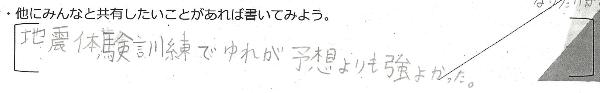 ・他にみんなと共有したいことがあれば書いてみよう。
地震体験訓練でゆれが予想よりも強よかった。